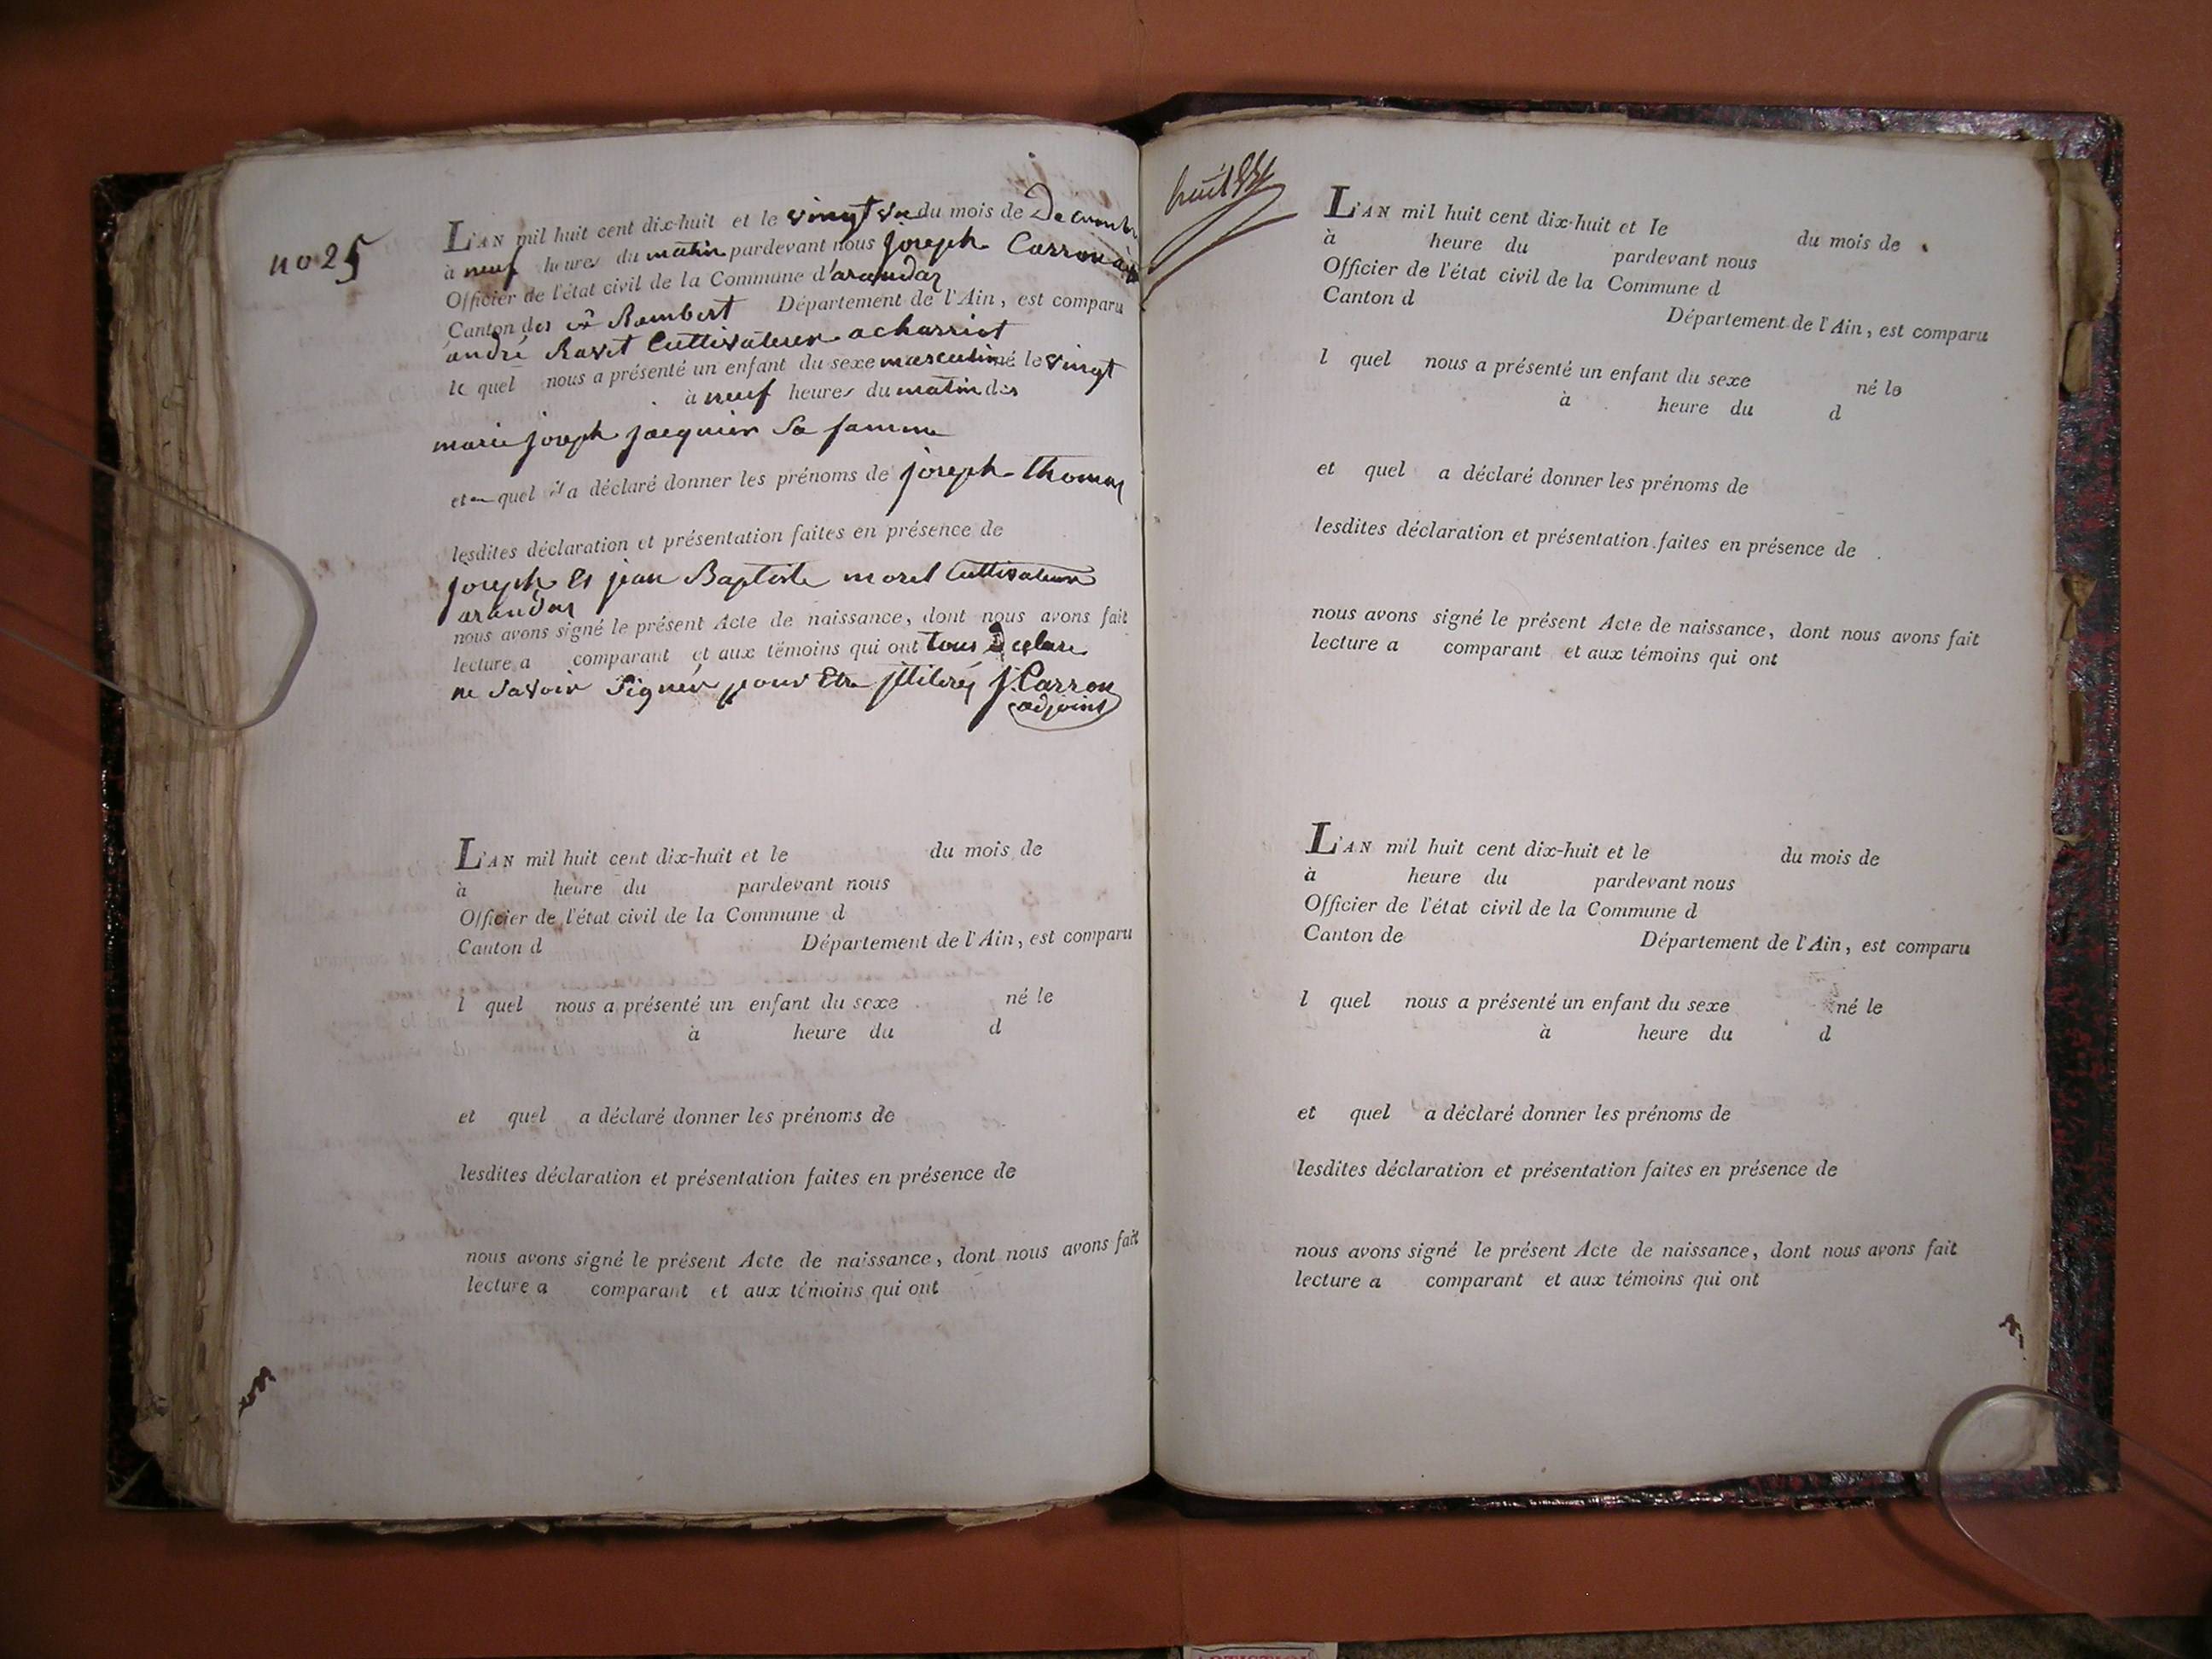 no 25
L'AN mil huit cent dix-huit et le vingt du mois de Decembre
à neuf heures du matin pardevant nous joseph Carron
Officier de l'état civil de la Commune d'arandas
Canton de st Rambert Département de l'Ain, est comparu
andré Ravet Cultivateur a charriot
le quel nous a présenté un enfant du sexe masculin né le vingt
à neuf heures du matin de
marie joseph jacquier Sa famme
et au quel il a déclaré donner les prénoms de joseph thomas
lesdites déclaration et présentation faites en présence de
joseph Et jean Baptiste morel Cultivateur
arandas
nous avons signé le présent Acte de naissance, dont nous avons fait
lecture a comparant et aux témoins qui ont tous declare
ne Savoir Signer pour Etre j. Carron
adjoint
L'AN mil huit cent dix-huit et le du mois de
à heure du pardevant nous
Officier de l'état civil de la Commune d
Canton d Département de l'Ain, est comparu
l quel nous a présenté un enfant du sexe né le
à heure du d
et quel a déclaré donner les prénoms de
lesdites déclaration et présentation faites en présence de
nous avons signé le présent Acte de naissance, dont nous avons fait
lecture a comparant et aux témoins qui ont
huit
L'AN mil huit cent dix-huit et le du mois de
à heure du pardevant nous
Officier de l'état civil de la Commune d
Canton d Département de l'Ain, est comparu
l quel nous a présenté un enfant du sexe né le
à heure du d
et quel a déclaré donner les prénoms de
lesdites déclaration et présentation faites en présence de
nous avons signé le présent Acte de naissance, dont nous avons fait
lecture a comparant et aux témoins qui ont
L'AN mil huit cent dix-huit et le du mois de
à heure du pardevant nous
Officier de l'état civil de la Commune d
Canton de Département de l'Ain, est comparu
l quel nous a présenté un enfant du sexe né le
à heure du d
et quel a déclaré donner les prénoms de
lesdites déclaration et présentation faites en présence de
nous avons signé le présent Acte de naissance, dont nous avons fait
lecture a comparant et aux témoins qui ont